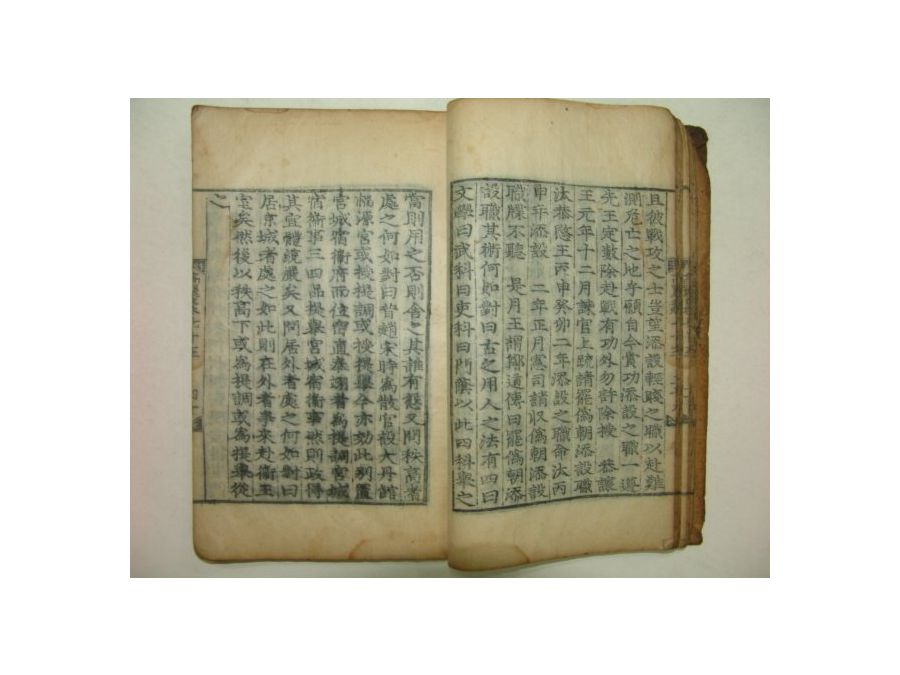 且彼戰攻之士豈望添設輕賤之職以赴難
測危亡之地乎願自今賞功添設之職一遵
先王定數除赴戰有功外勿許除授 恭讓
王元年十二月諫官上疏請罷僞朝添設職
汰恭愍王丙申癸卯二年添設之職命汰丙
申年添設 二年正月憲司請收僞朝添設
職牒不聽 是月王謂鄭道傳曰罷僞朝添
設職其術何如對曰古之用人之法有四曰
文學曰武科曰吏科曰門蔭以此四科擧之
當則用之否則舍之其誰有怨又問秩高者
處之何如對曰昔趙宋時爲散官設大丹館
福源宮或授提調或授提擧今亦効此別置
宮城宿衛府而位密直奉翊者爲提調宮城
宿衛事三四品提擧宮城宿衛事然則政得
其宜體統嚴矣又問居外者處之何如對曰
居京城者處之如此則在外者爭來赴衛王
室矣然後以秩高下或爲提調或爲提擧從
之